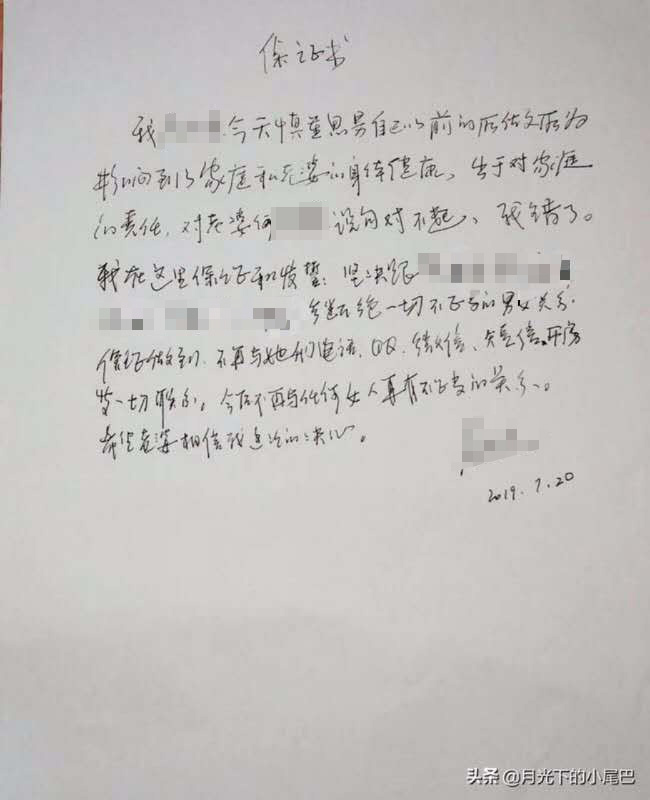 保证书
我 今天慎重思考自己以前的所做之所为
影响到了家庭和老婆的身体健康，出于对家庭
的责任，对老婆何 说句对不起、我错了。
我在这里保证和发誓：坚决跟
等断绝一切不正当的男女关系.
保证做到，不再与她们电话、QQ、微信、短信、开房
等一切联系。今后不再与任何女人再有不正当的关系、
希望老婆相信我这次的决心。
2019.7.20
头条 @月光下的小尾巴